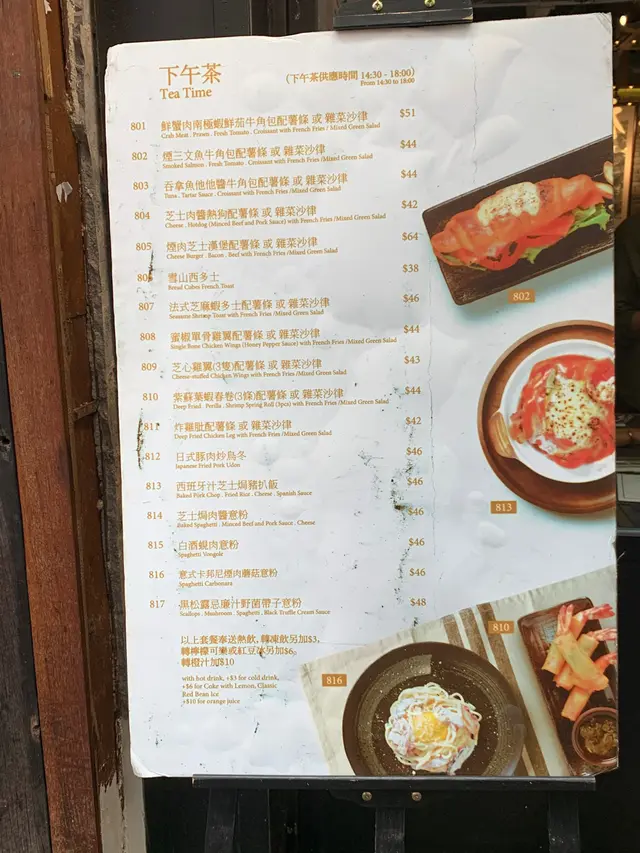 下午茶
(下午茶供應時間 14:30 - 18:00)
Tea Time
From 14:30 to 18:00
801 鮮蟹肉南極蝦鮮茄牛角包配薯條 或 雜菜沙律 $51
Crab Meat . Prawn . Fresh Tomato . Croissant with French Fries / Mixed Green Salad
802 煙三文魚牛角包配薯條 或 雜菜沙律 $44
Smoked Salmon . Fresh Tomato . Croissant with French Fries /Mixed Green Salad
803 吞拿魚他他醬牛角包配薯條 或 雜菜沙律 $44
Tuna . Tartar Sauce . Croissant with French Fries /Mixed Green Salad
804 芝士肉醬熱狗配薯條 或 雜菜沙律 $42
Cheese . Hotdog (Minced Beef and Pork Sauce) with French Fries /Mixed Green Salad
805 煙肉芝士漢堡配薯條 或 雜菜沙律 $64
Cheese Burger . Bacon . Beef with French Fries /Mixed Green Salad
806 雪山西多士 $38
Bread Cubes French Toast
807 法式芝麻蝦多士配薯條 或 雜菜沙律 $46
Seasame Shrimp Toast with French Fries /Mixed Green Salad
808 蜜椒單骨雞翼配薯條 或 雜菜沙律 $44
Single Bone Chicken Wings (Honey Pepper Sauce) with French Fries /Mixed Green Salad
809 芝心雞翼(3隻)配薯條 或 雜菜沙律 $43
Cheese-stuffed Chicken Wings with French Fries /Mixed Green Salad
810 紫蘇葉蝦春卷(3條)配薯條 或 雜菜沙律 $44
Deep Fried . Perilla . Shrimp Spring Roll (3pcs) with French Fries /Mixed Green Salad
811 炸雞髀配薯條 或 雜菜沙律 $42
Deep Fried Chicken Leg with French Fries /Mixed Green Salad
812 日式豚肉炒烏冬 $46
Japanese Fried Pork Udon
813 西班牙汁芝士焗豬扒飯 $46
Baked Pork Chop . Fried Rice . Cheese . Spanish Sauce
814 芝士焗肉醬意粉 $46
Baked Spaghetti . Minced Beef and Pork Sauce . Cheese
815 白酒蜆肉意粉 $46
Spaghetti Vongole
816 意式卡邦尼煙肉蘑菇意粉 $46
Spaghetti Carbonara
817 黑松露忌廉汁野菌帶子意粉 $48
Scallops . Mushroom . Spaghetti . Black Truffle Cream Sauce
以上套餐奉送熱飲, 轉凍飲另加$3,
轉檸檬可樂或紅豆冰另加$6,
轉橙汁加$10
with hot drink, +$3 for cold drink,
+$6 for Coke with Lemon, Classic
Red Bean Ice
+$10 for orange juice
802
813
810
816